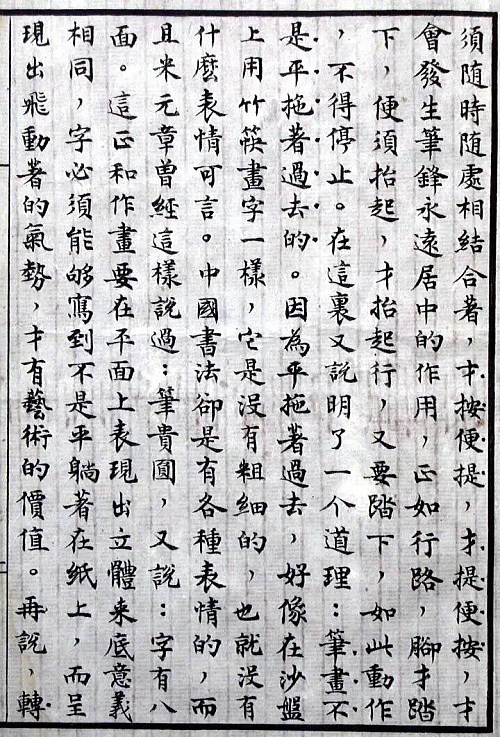 須隨時隨處相結合著，才按便提，才提便按，才
會發生筆鋒永遠居中的作用，正如行路，腳才踏
下，便須抬起，才抬起行，又要踏下，如此動作
，不得停止。在這裏又說明了一个道理：筆畫不
是平拖著過去的。因為平拖著過去，好像在沙盤
上用竹筷畫字一樣，它是沒有粗細的，也就沒有
什麼表情可言。中國書法卻是有各種表情的，而
且米元章曾經這樣說過：筆貴圓，又說：字有八
面。這正和作畫要在平面上表現出立體來底意義
相同，字必須能够寫到不是平躺著在紙上，而呈
現出飛動著的氣勢，才有藝術的價值。再說，轉